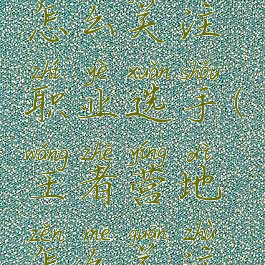 怎么关注
zhí yè xuǎn shǒu
职业选手(
wáng zhě yíng dì
王者营地
zěn me guān zhù
怎么关注